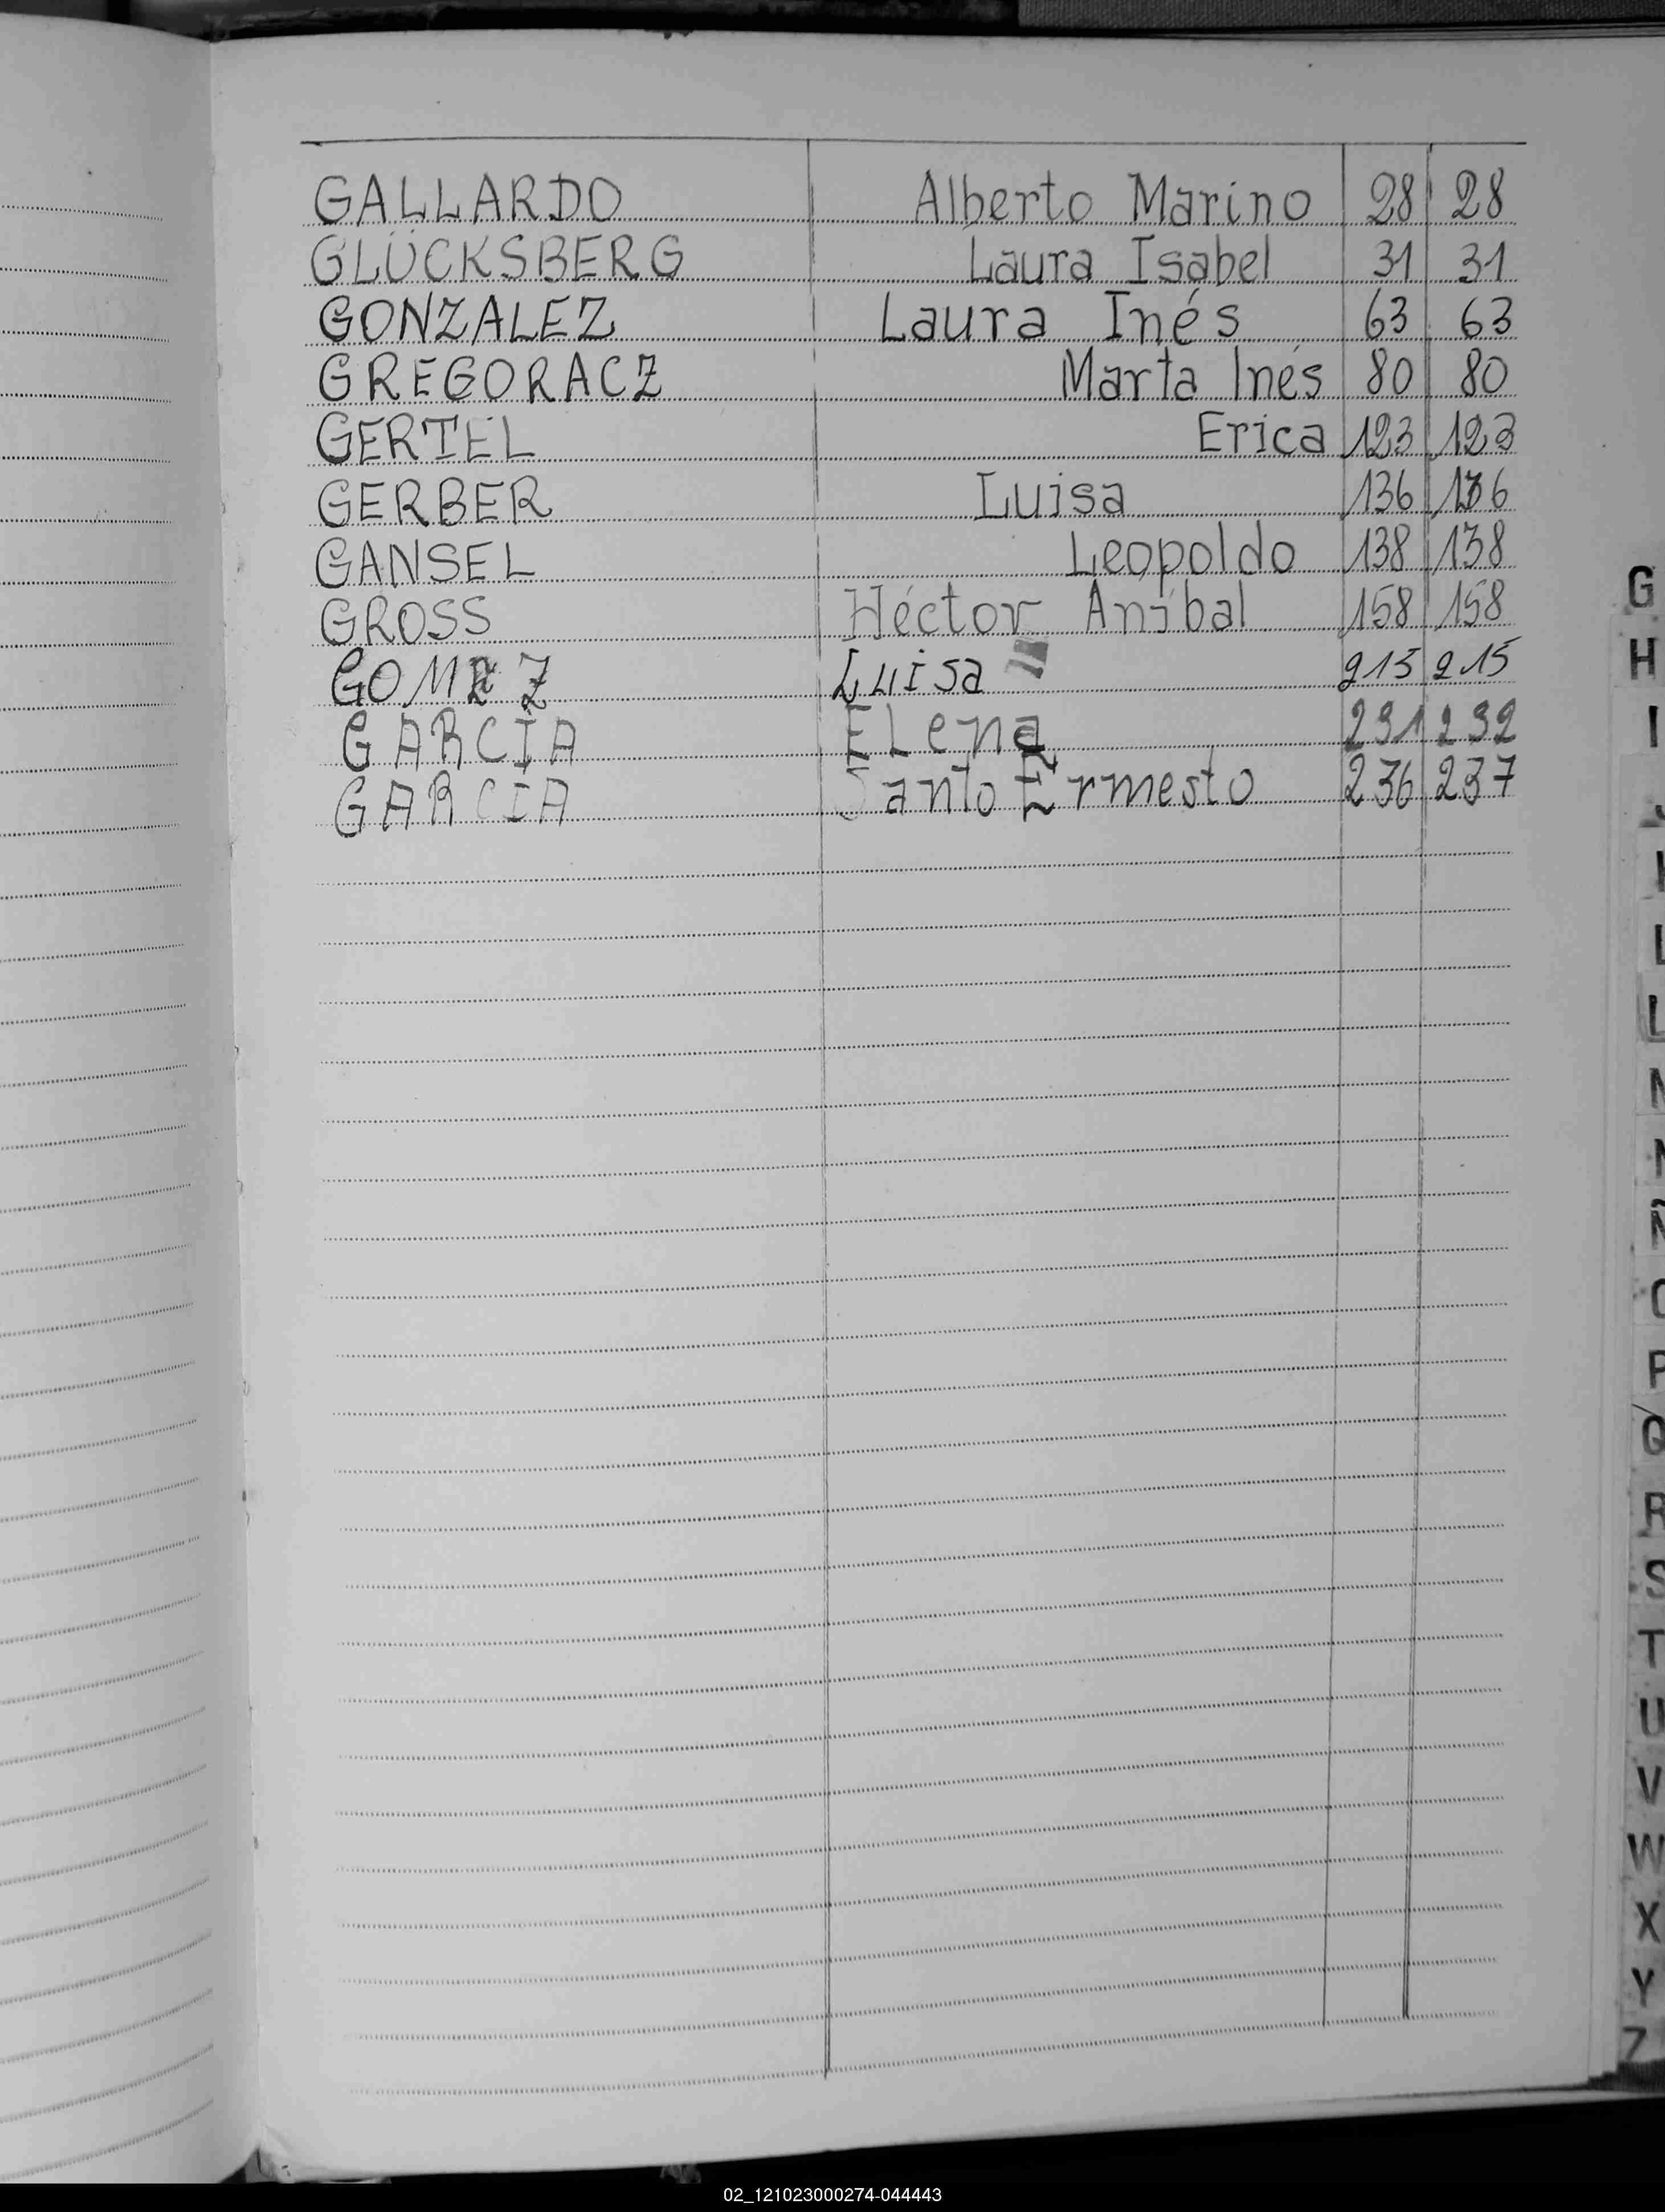 GALLARDO Alberto Marino 28 28
GLÜCKSBERG Laura Isabel 31 31
GONZALEZ Laura Inés 63 63
GREGORACZ Marta Inés 80 80
GERTEL Erica 123 123
GERBER Luisa 136 136
GANSEL Leopoldo 138 138
GROSS Héctor Aníbal 158 158
GOMEZ Luisa 215 215
GARCIA Elena 231 232
GARCIA Santo Ermesto 236 237
G
H
I
J
L
L
N
Ñ
O
P
Q
R
S
T
U
V
W
X
Y
Z
02_121023000274-044443